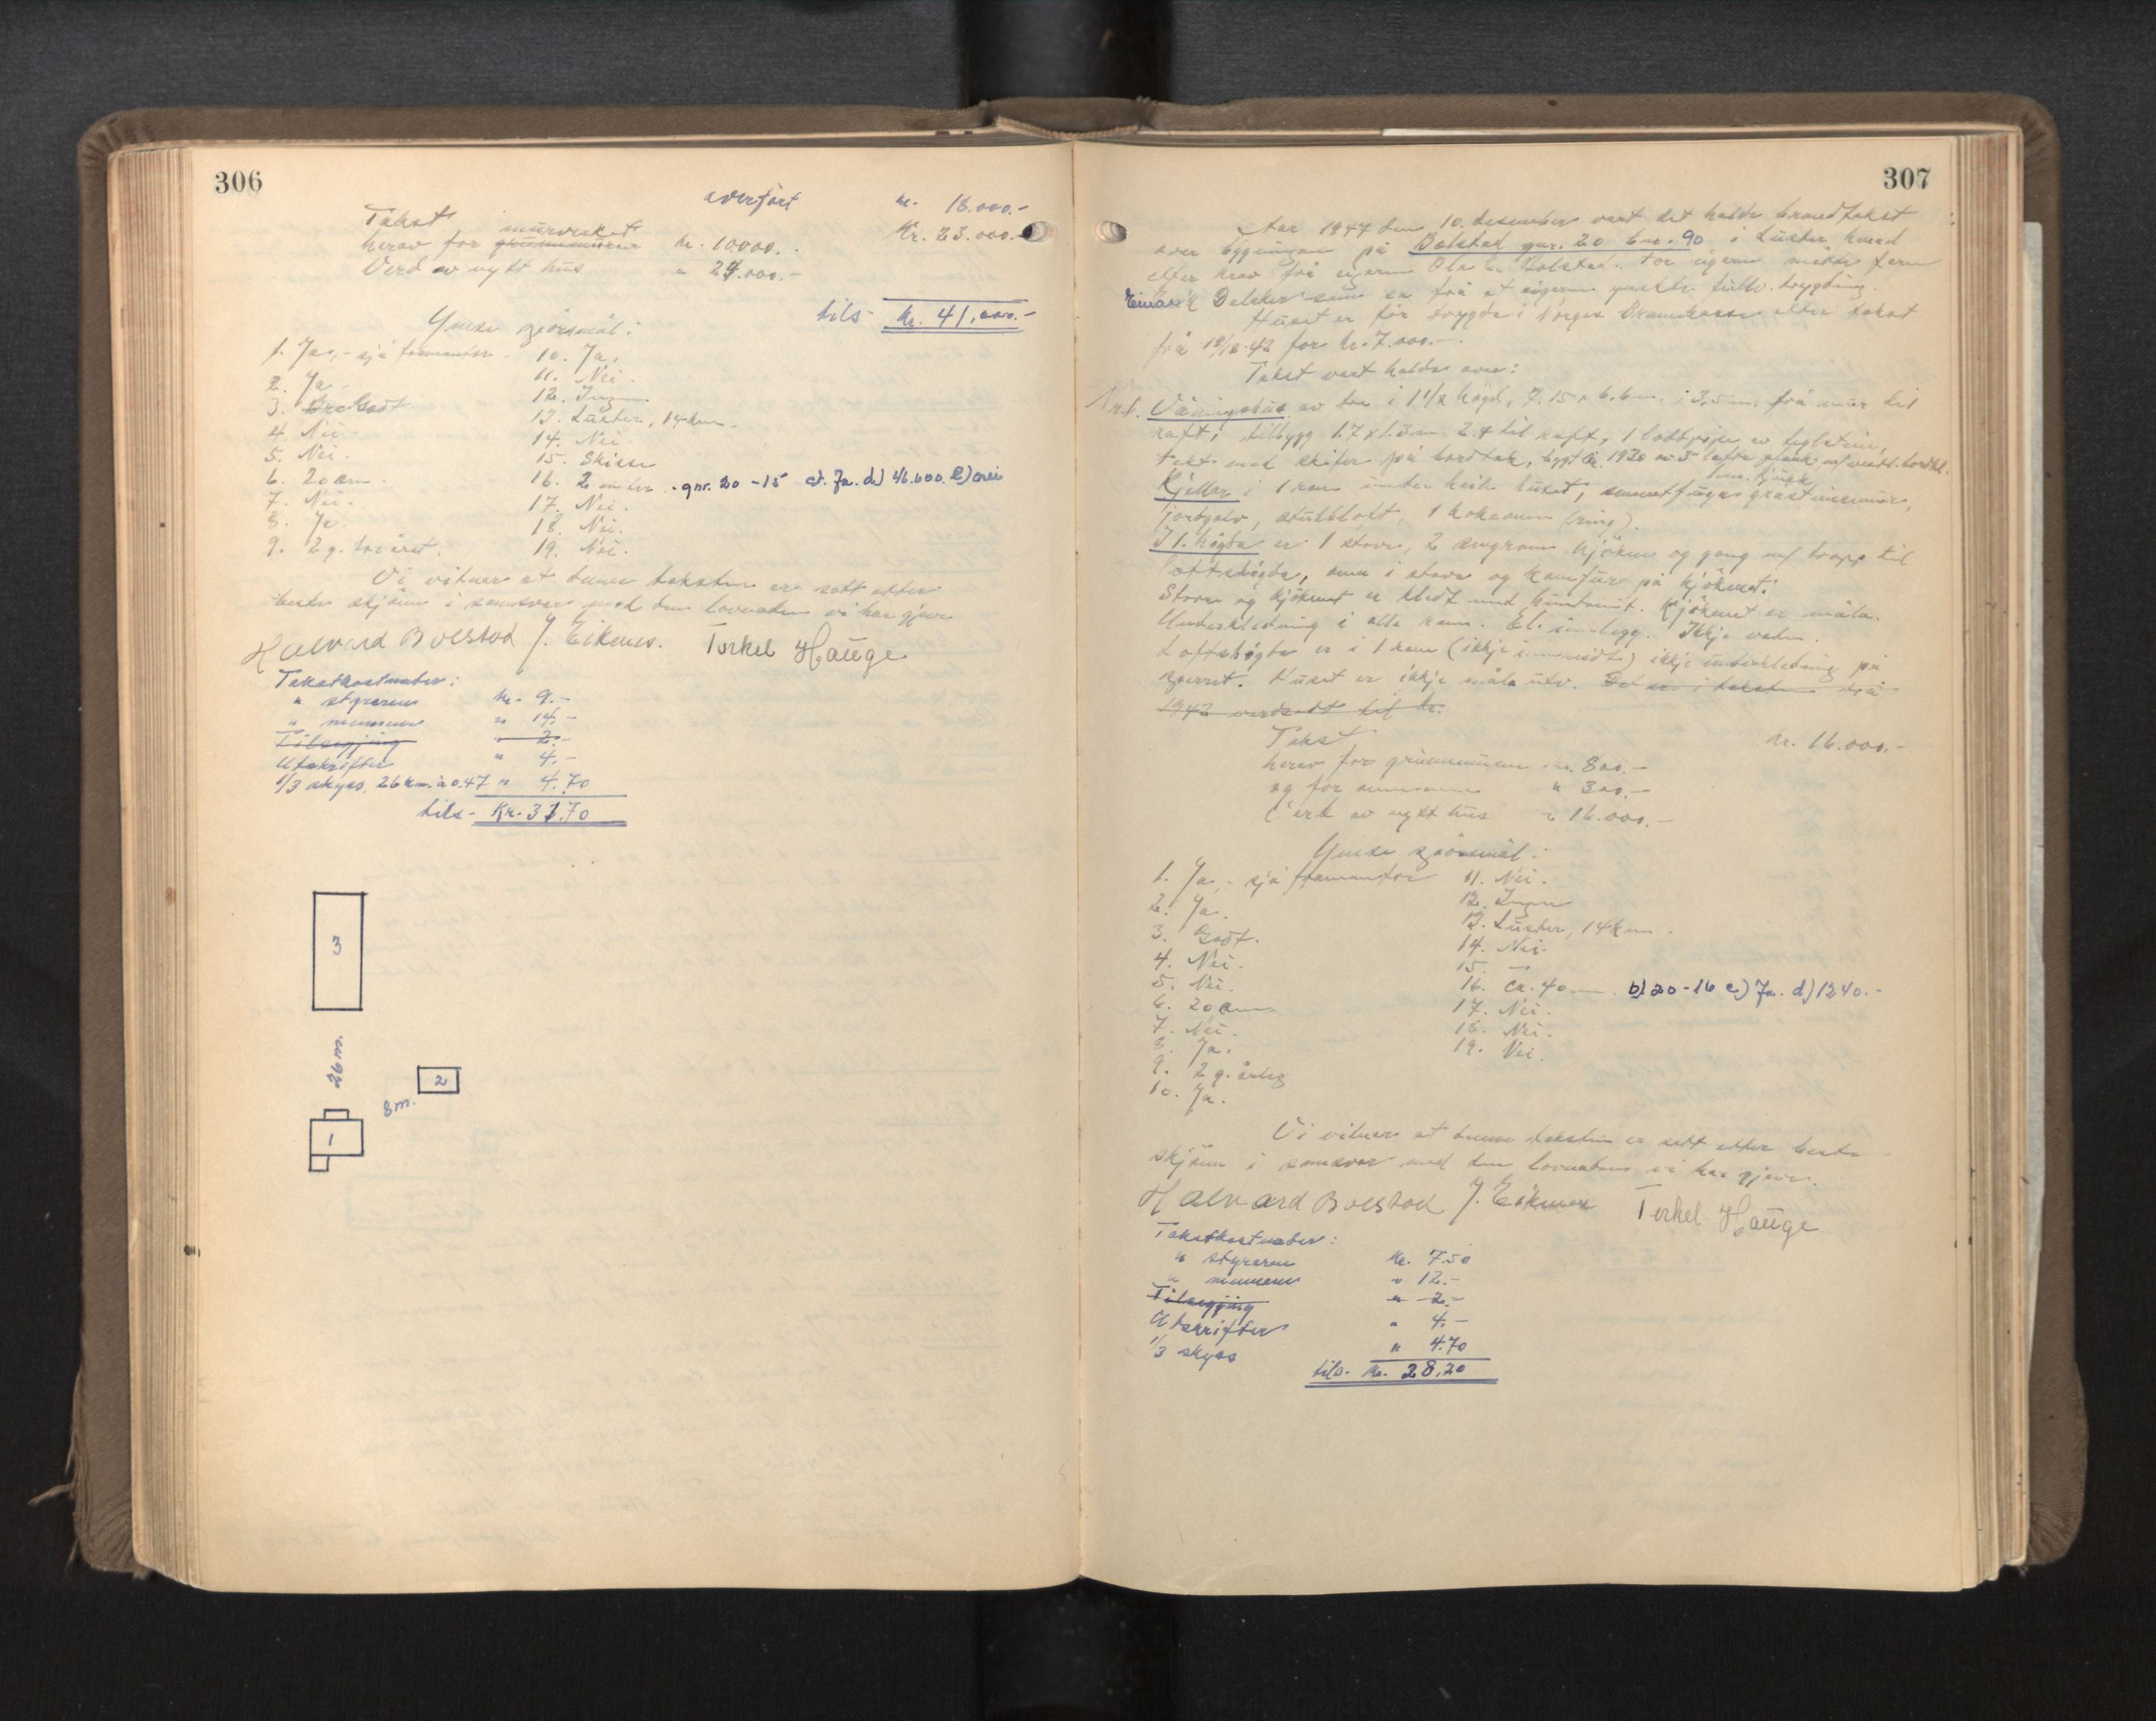 306
overført kr. 18.000.-
Takst Kr. 23.000.-
murverket
herav for grunnmuren kr. 10000.-
Verd av nytt hus " 24.000.-
tils- kr. 41.000.-
Ymse spörsmål:
1. Ja,- sjå framanfor. 10. Ja.
2. Ja. 11. Nei.
3. Godt 12. Ingen
4. Nei. 13. Luster, 14 km.
5. Nei. 14. Nei.
6. 20 cm. 15. Skisse
7. Nei. 16. gnr. 20-15 Ja. d) 46.600. e) nei
8. Ja. 17. Nei.
9. 2 g. 18. Nei.
19. Nei.
Vi vitnar at denne taksten er sett etter
beste skjönn i samsvar med den lovnaden vi har gjeve
Halvard Bolstad J. Eikenes. Torkel Hauge
Takstkostnader:
" styraren kr. 9.-
" mennene " 14.-
Tilsegjing " 2.-
Utskrifter " 4.-
1/3 skyss, 26 km. à 0.47 " 4.70
tils- Kr. 31.70
3
26 m.
2
8 m.
1
307
År 1947 den 10. desember vart det halde brandtakst
over bygningen på Bolstad gnr. 20 bnr. 90 i Luster herad
etter krav frå eigaren Ola Bolstad. For eigaren møtte
Einar Dalaker som sa frå at eigaren ynskte full trygding.
Huset er för trygda i Norges Brannkasse etter takst
frå 18/12-42 for kr. 7.000.-.
Takst vart halde over:
Nr. 1. Våningshus av tre i 1 1/2 högd, 7.15 x 6.6 m. i 3,5 m. frå mur til
raft, tilbygg 1.7 x 1.3 m 2.4 til raft, 1 loddpipe av teglstein,
tekt med skifer på bordtak, bygt år 1920 av 3" plank m/ bordkl.
Kjellar i 1 rom under heile huset, sementfuga gråsteinsmur,
jordgolv, stubbloft, 1 kokeomn (ring).
I 1. högda er 1 stove, 2 sengrom, kjöken og gang m/ trapp til
loftshögda, omn i stova og komfur på kjökenet.
Stova og kjökenet er kledt med huntonit. Kjökenet er måla.
Underkledning i alle rom. El. innlegg. Ikkje vatn.
Loftshögda er i 1 rom (ikkje innreidt) ikkje underkledning på
sperret. Huset er ikkje måla utv. Det er i taksten frå
1942 verdsatt til kr.
Takst kr. 16.000.-
herav for grunnmuren kr. 800.-
og for omnane " 300.-
Verd av nytt hus " 16.000.-
Ymse spörsmål:
1. Ja,- sjå framanfor 11. Nei.
2. Ja. 12. Ingen
3. Godt. 13. Luster, 14 km.
4. Nei. 14. Nei.
5. Nei. 15. -
6. 20 cm 16. ca. 40 m b) 20-16 c) Ja. d) 1240.-
7. Nei. 17. Nei.
8. Ja. 18. Nei.
9. 2 g. årleg 19. Nei.
10. Ja.
Vi vitnar at denne taksten er sett etter beste
skjönn i samsvar med den lovnaden vi har gjeve.
Halvard Bolstad J. Eikenes Torkel Hauge
Takstkostnader:
" styraren kr. 7.50
" mennene " 12.-
Tilsegjing " 2.-
Utskrifter " 4.-
1/3 skyss " 4.70
tils- kr. 28.20